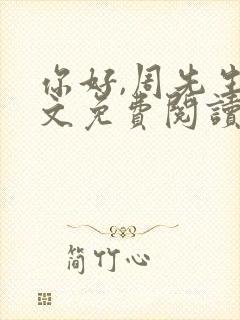 你好,周先生
文免費閱讀
簡竹心